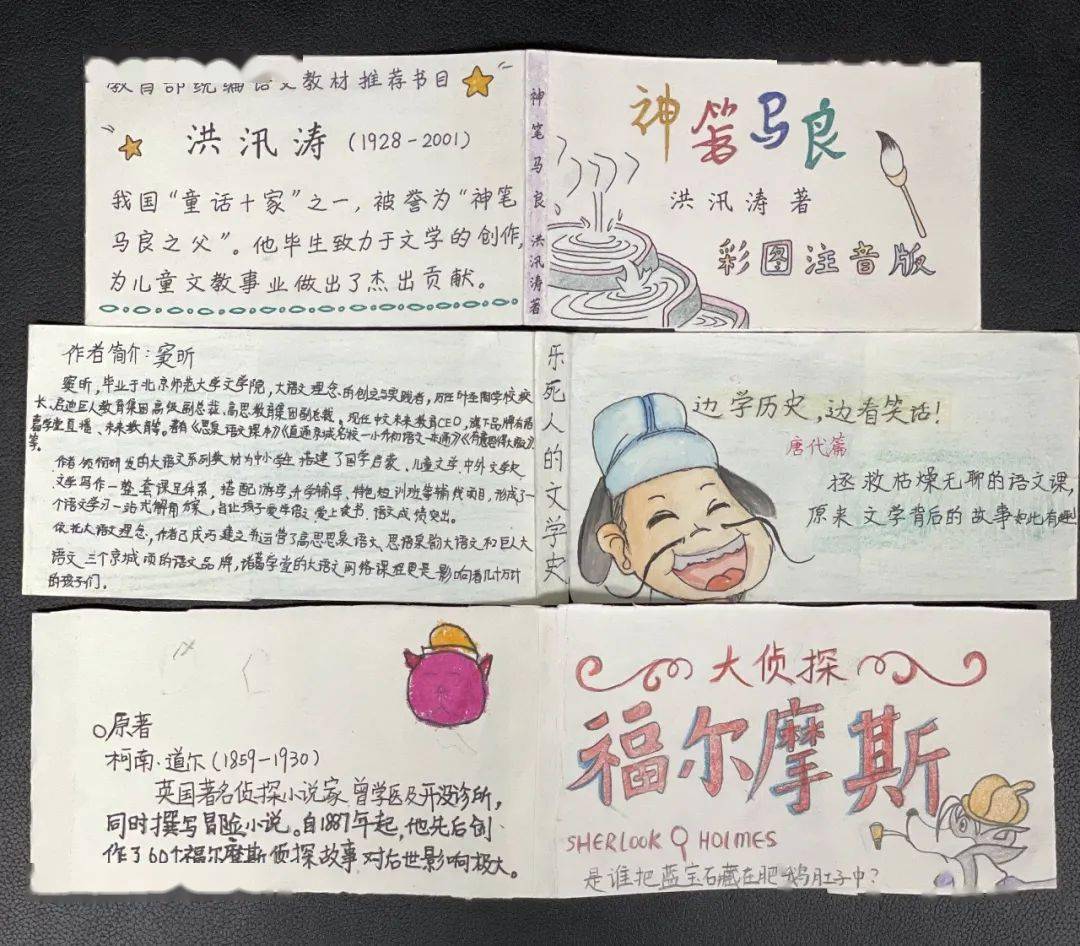 教育部统编语文教材推荐书目
洪汛涛（1928-2001）
我国“童话十家”之一，被誉为“神笔
马良之父”。他毕生致力于文学的创作，
为儿童文教事业做出了杰出贡献。
神笔马良 洪汛涛著
神笔马良
洪汛涛著
彩图注音版
作者简介：窦昕
窦昕，毕业于北京师范大学文学院，大语文理念的创立与实践者，历任叶圣陶学校校
长、启迪巨人教育集团高级副总裁、高思教育集团副总裁。现任中文未来教育CEO，旗下品牌有诸
葛学堂直播、未来教育等。著有《思泉语文课本》《直通京城名校—小升初语文一本通》
等。
作者领衔研发的大语文系列教材为中小学生搭建了国学启蒙、儿童文学、中外文学史、
文学写作一整套课程体系，搭配游学、升学辅导、特色短训班等辅线项目，形成了一
个语文学习一站式解角方案，旨让孩子爱学语文、爱上读书，语文成绩突出。
依托大语文理念，作者已成功建立并运营了高思思泉语文、思语泉韵大语文和巨人大
语文三个京城顶的语文品牌，诸葛学堂的大语文网络课程更是影响着几十万计
的孩子们。
乐死人的文学史
边学历史，边看笑话！
唐代篇
拯救枯燥无聊的语文课，
原来文学背后的故事如此有趣
原著
柯南·道尔（1859-1930）
英国著名侦探小说家曾学医及开设诊所，
同时撰写冒险小说。自1887年起，他先后创
作了60个福尔摩斯侦探故事对后世影响极大。
大侦探
福尔摩斯
SHERLOOK HOLMES
是谁把蓝宝石藏在肥鹅肚子中？